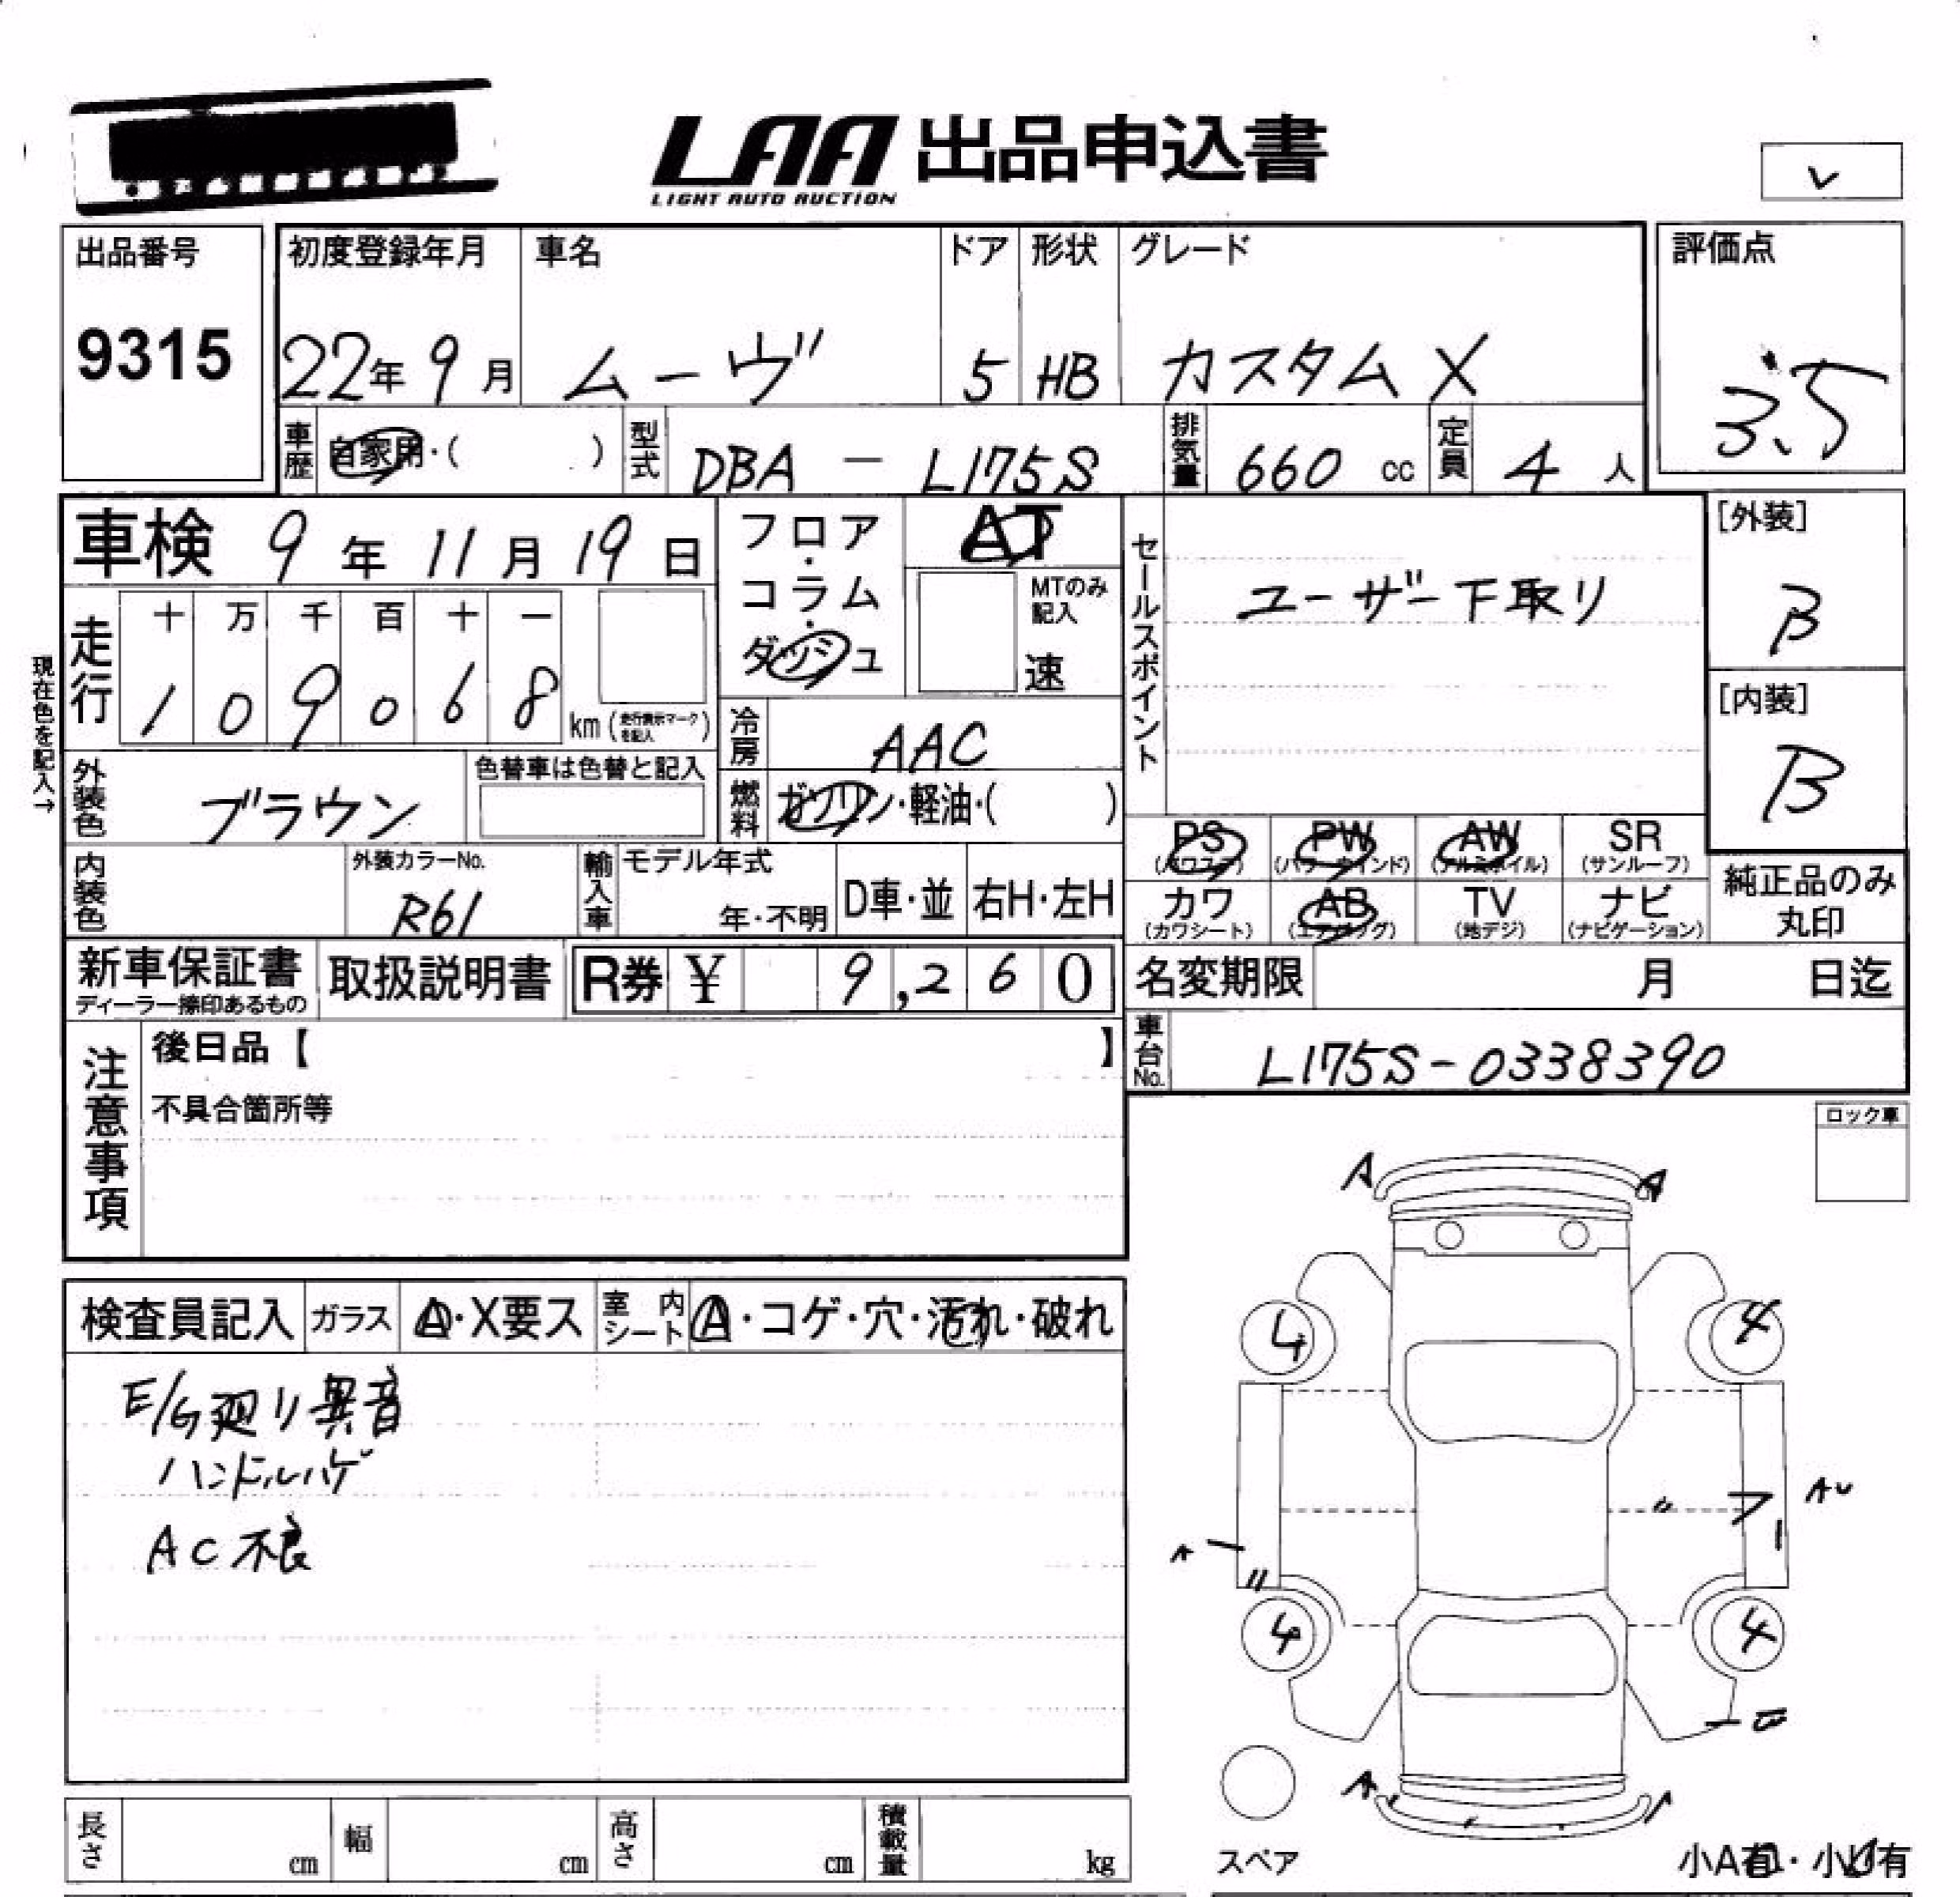 LAA 出品申込書
LIGHT AUTO AUCTION
出品番号
9315
初度登録年月
22年 9月
車名
ムーヴ
ドア
5
形状
HB
グレード
カスタムX
評価点
3.5
車歴 自家用・( )
型式 DBA - L175S
排気量 660 cc
定員 4 人
車検 9年 11月 19日
現在色を記入→
走行
十 万 千 百 十 一
1 0 9 0 6 8 km (走行表示マークを記入)
フロア・コラム・ダッシュ
AT
MTのみ記入
速
セールスポイント
ユーザー下取り
[外装]
B
[内装]
B
冷房 AAC
外装色 ブラウン
色替車は色替と記入
燃料 ガソリン・軽油・( )
PS (パワステ)
PW (パワーウインド)
AW (アルミホイル)
SR (サンルーフ)
カワ (カワシート)
AB (エアバッグ)
TV (地デジ)
ナビ (ナビゲーション)
純正品のみ丸印
内装色
外装カラーNo.
R61
輸入車
モデル年式
年・不明
D車・並
右H・左H
新車保証書
ディーラー捺印あるもの
取扱説明書
R券 ¥ 9,260
名変期限 月 日迄
車台No. L175S-0338390
注意事項
後日品【 】
不具合箇所等
ロック車
検査員記入
ガラス A・X要ス
室内シート A・コゲ・穴・汚れ・破れ
E/G廻り異音
ハンドルハゲ
AC不良
A A
4 4
フ AU
A
4 4
A
スペア
小A有・小U有
長さ cm
幅 cm
高さ cm
積載量 kg